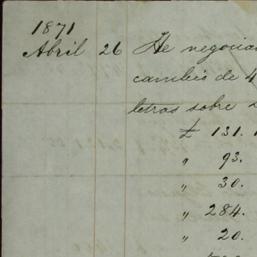 1871
Abril 26 He negocia
cambio de 4
letras sobre
£ 131. 1
" 93.
" 30.
" 284.
" 20.